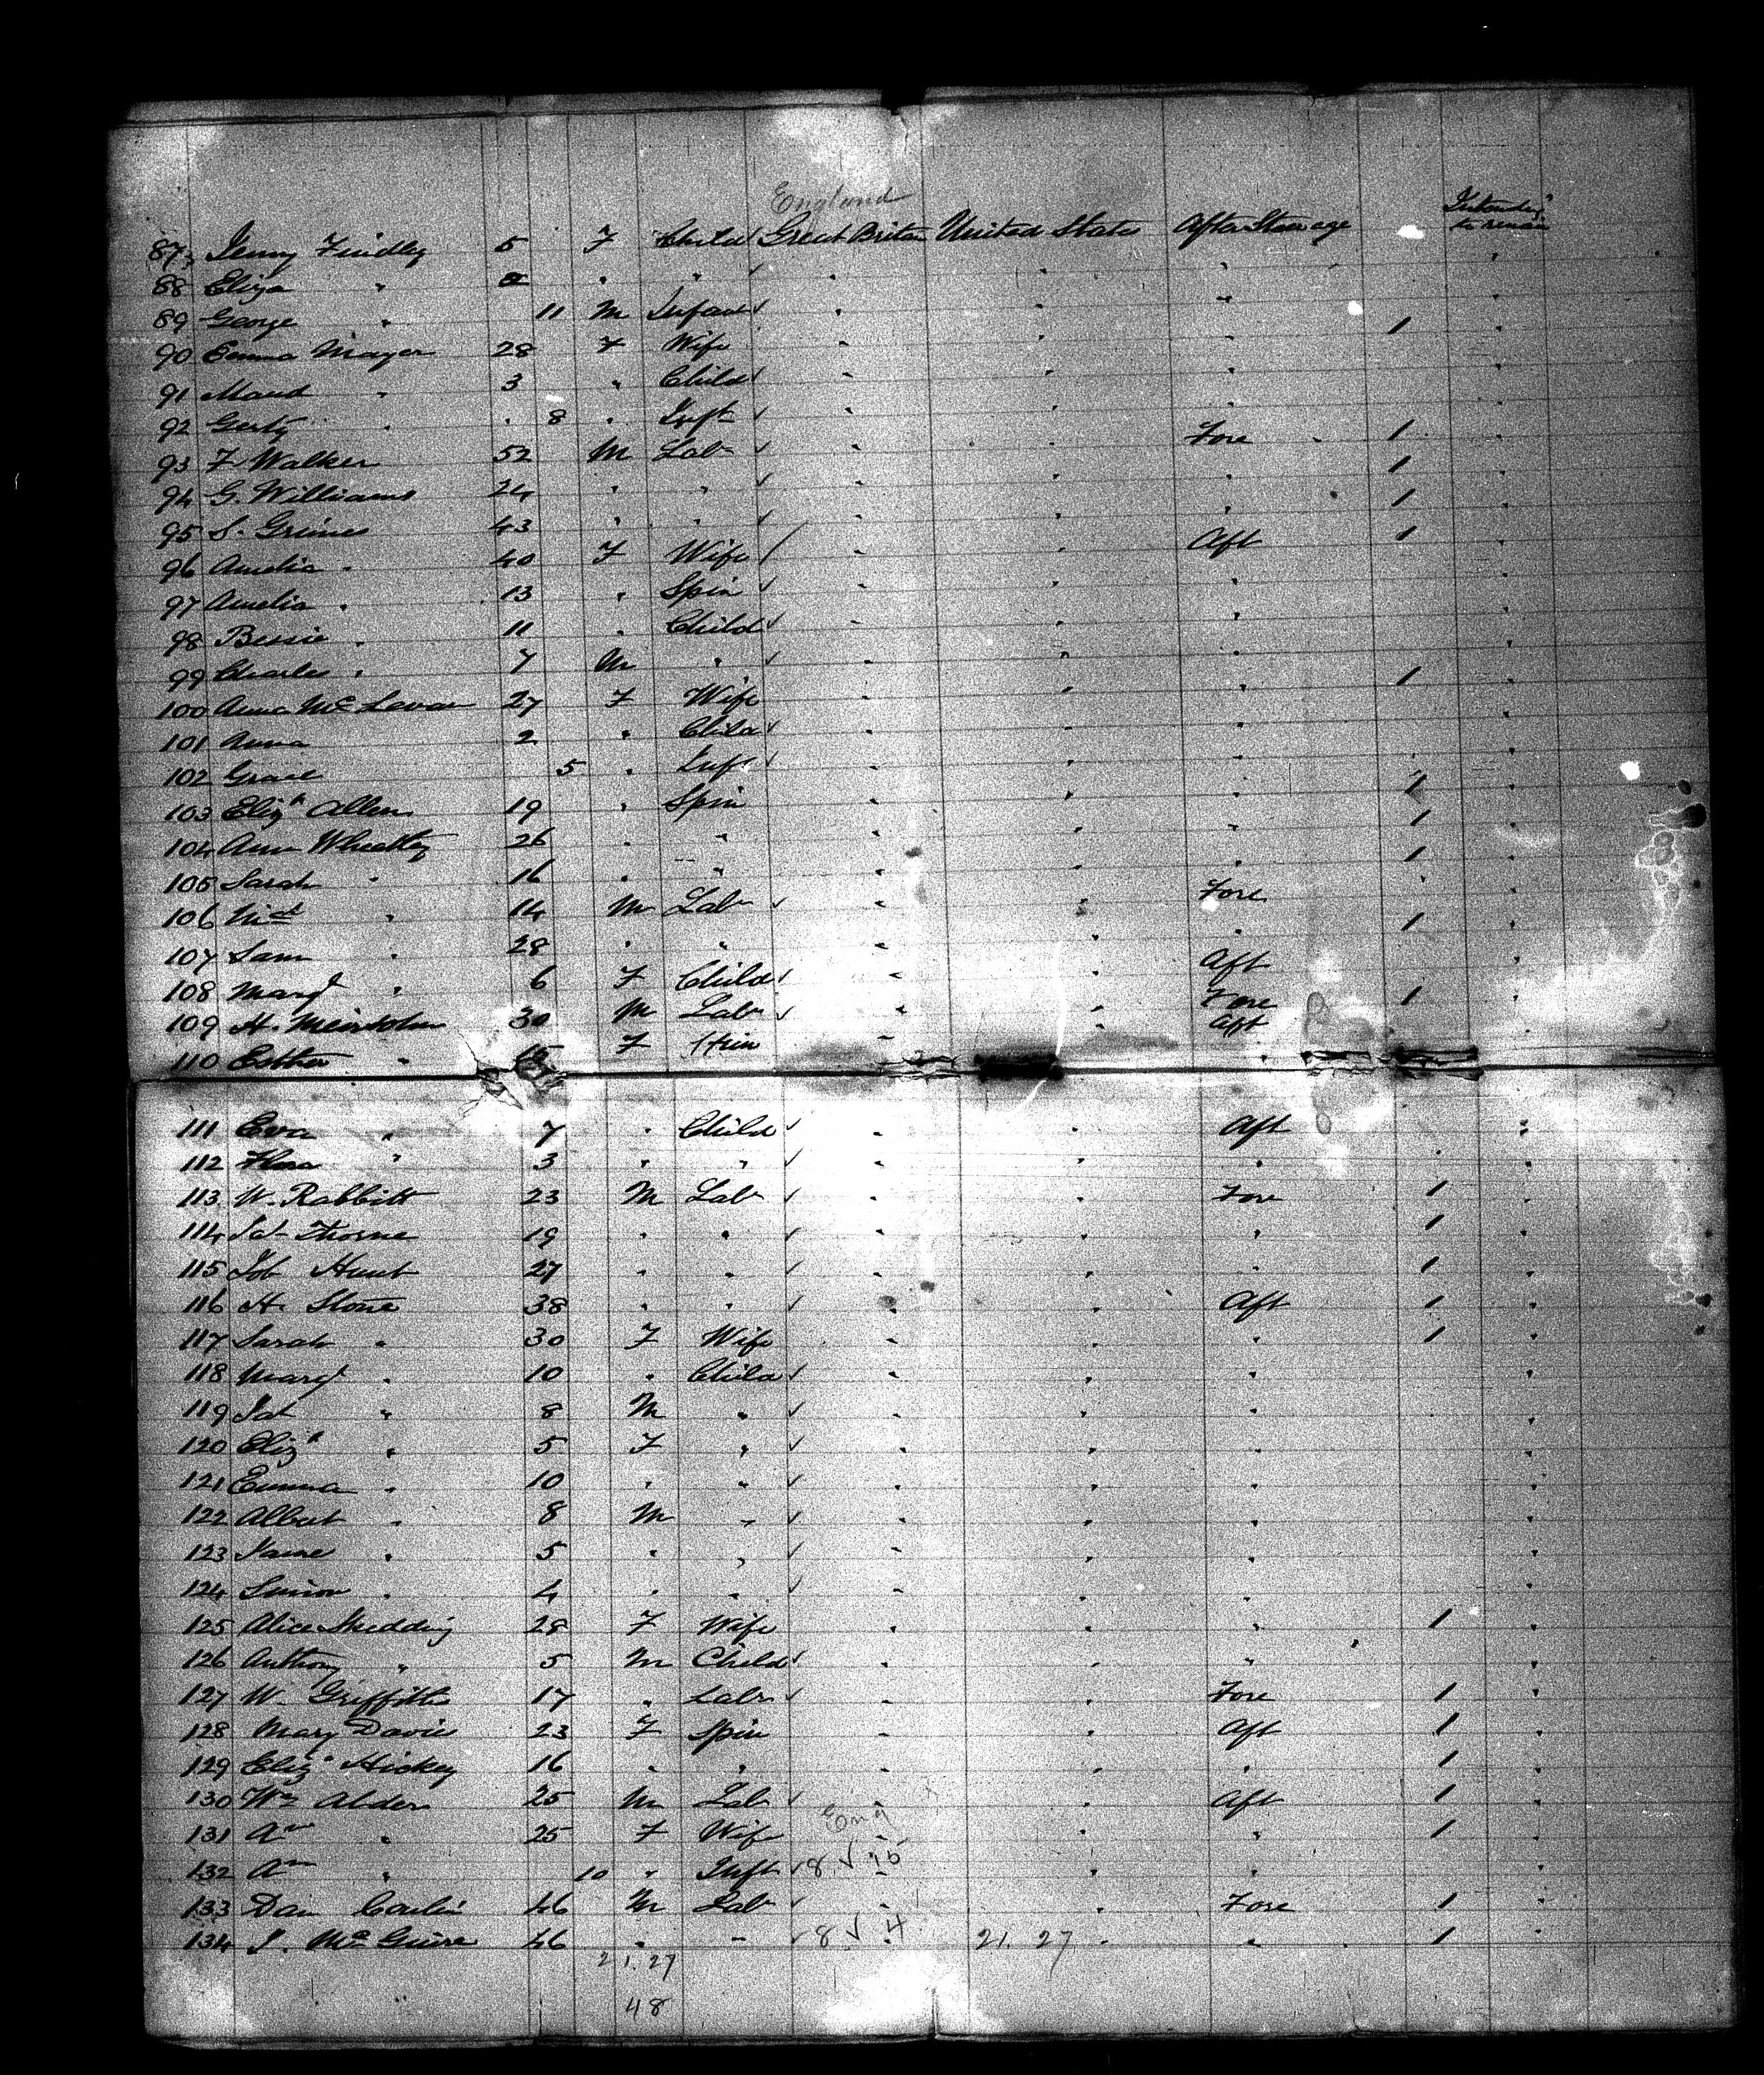 England
Intending
to remain
87 Jenny Findley 5 F Child Great Britan United State After Steerage
88 Eliza " " "
89 George " 11 M Infant
90 Emma Mayer 28 F Wife 1
91 Maud " 3 " Child
92 Gerty " " 8 " Inft
93 F Walker 52 M Labr Fore 1
94 G. Williams 24 " " 1
95 S. Grimes 43 " " 1
96 Amelia " 40 F Wife Aft 1
97 Amelia " 13 " Spin
98 Bessie " 11 " Child
99 Charles " 7 M "
100 Anna McLevan 27 F Wife 1
101 Anna 2 " Child
102 Grace 5 " Inft
103 Elizh Allen 19 " Spin 1
104 Ann Wheatley 26 " " 1
105 Sarah " 16 " " 1
106 " 14 M Labr Fore
107 Sam " 28 " " 1
108 Margt " 6 F Child Aft
109 H. 30 M Labr Fore 1
110 Esther " 15 F Aft
111 Eva " 7 " Child Aft
112 Flora " 3 " "
113 W. Rabbitt 23 M Labr Fore 1
114 Thorne 19 " " " 1
115 Job Hunt 27 " " 1
116 H. Stone 38 " " Aft 1
117 Sarah " 30 F Wife " 1
118 Margt " 10 " Child "
119 " 8 M " "
120 Elizh " 5 F " "
121 Emma " 10 " " "
122 Albert " 8 M " "
123 " 5 " " "
124 Simon " 4 " " "
125 Alice Skedding 28 F Wife " 1
126 Anthony " 5 M Child "
127 W. Griffiths 17 " Labr Fore 1
128 Mary Davies 23 F Spin Aft 1
129 Elizh Hickey 16 " " " 1
130 Wm Alder 25 M Lab Aft 1
131 Ann " 25 F Wife Eng " 1
132 Ann " 10 " Inft 8 √ 15 "
133 Dan 46 M Lab Fore 1
134 J. McGuire 46 " " 8 √ 4 21. 27 " 1
21. 27
48